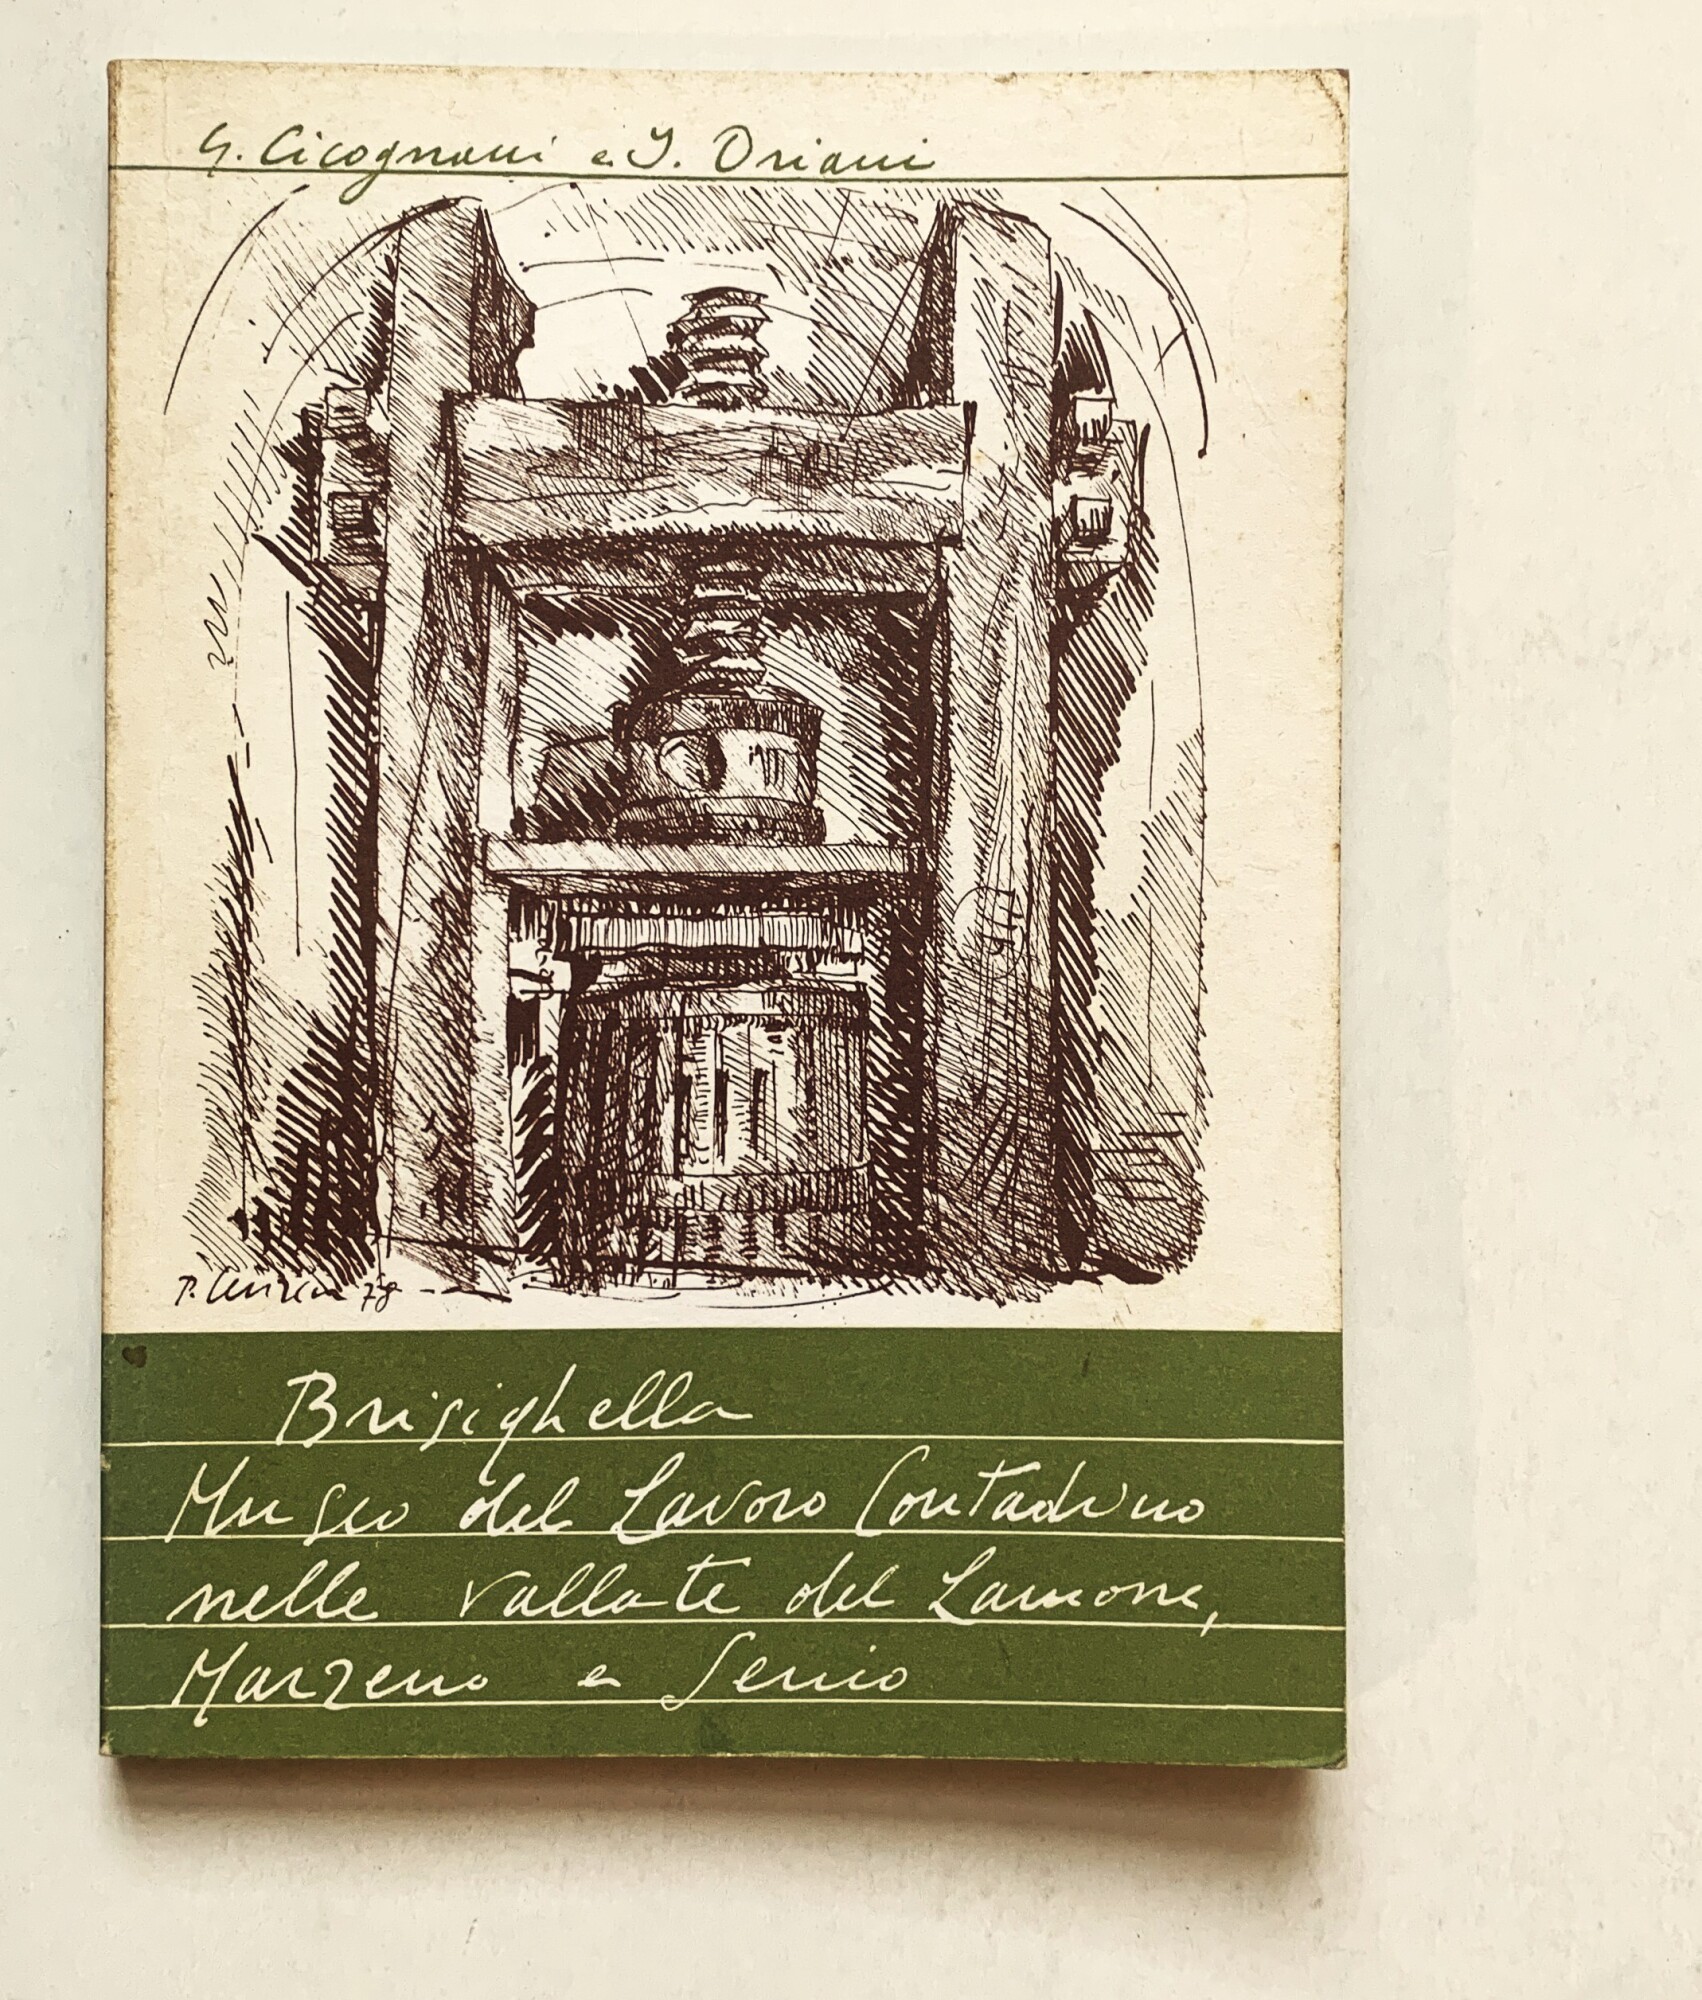 G. Cicognani e I. Oriani
78
Brisighella
Museo del Lavoro Contadino
nelle vallate del Lamone,
Marzeno e Senio